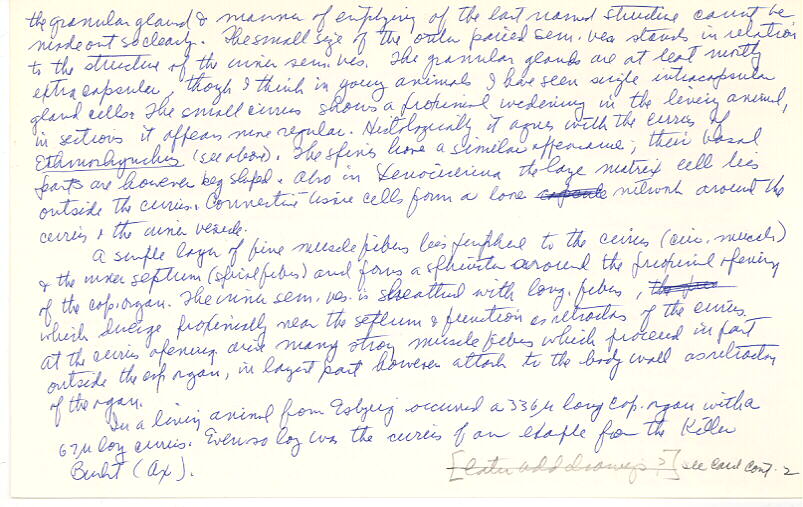 the granular gland & manner of emptying of the last named structure cannot be
made out so clearly. The small size of the outer paired sem. ves. stands in relation
to the structure of the inner sem. ves. The granular glands are at least mostly
extracapsular, though I think in young animals I have seen single intracapsular
gland cells. The small cirrus shows a proximal widening in the living animal,
in sections it appears more regular. Histologically it agrees with the cirrus of
Ethmorhynchus (see above). The spines have a similar appearance; their basal
parts are however peg shaped. Also in Xenocicerina the large matrix cell lies
outside the cirrus. Connective tissue cells form a loose capsule network around the
cirrus & the inner vesicle.
A simple layer of fine muscle fibers lies peripheral to the cirrus (circ. muscles)
& the inner septum (spiral fibers) and forms a sphincter around the proximal opening
of the cop. organ. The inner sem. ves. is sheathed with long. fibers,
which emerge proximally near the septum & function as retractors of the cirrus.
At the cirrus opening arise many strong muscle fibers which proceed in part
outside the cop organ, in largest part however attach to the body wall as retractors
of the organ.
In a living animal from Esbjerg occurred a 336 µ long cop. organ with a
67 µ long cirrus. Even so long was the cirrus of an example from the Kieler
Bucht (Ax).
[later add drawings ?] see card cont. 2